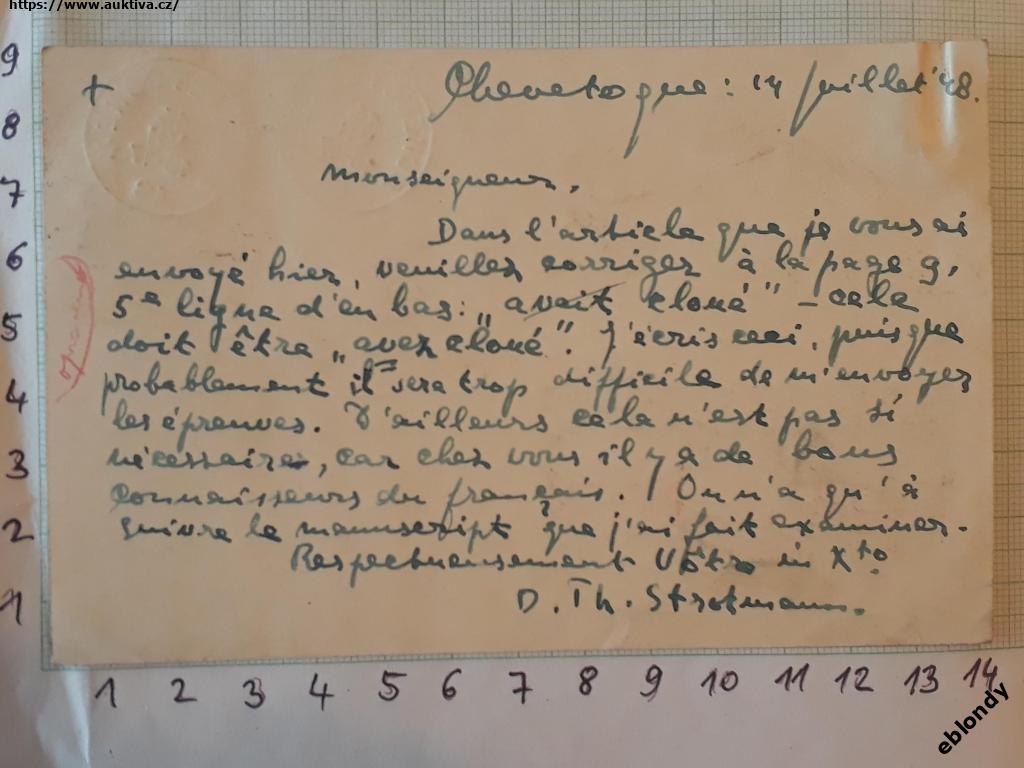 https://www.auktiva.cz/
+ Chevetogne : 14 juillet '48.
Monseigneur,
Dans l'article que je vous ai
envoyé hier, veuillez corriger à la page 9,
5e ligne d'en bas: „avait cloué" – cela
doit être „avez cloué". J'écris ceci, puisque
probablement il sera trop difficile de m'envoyer
les épreuves. D'ailleurs cela n'est pas si
nécessaire, car chez vous il y a de bons
connaisseurs du français. On n'a qu'à
suivre le manuscript que j'ai fait examiner.
Respectueusement Vôtre in Xto.
D. Th. Strotmann.
9
8
7
6
5
4
3
2
1
1 2 3 4 5 6 7 8 9 10 11 12 13 14
eblondy